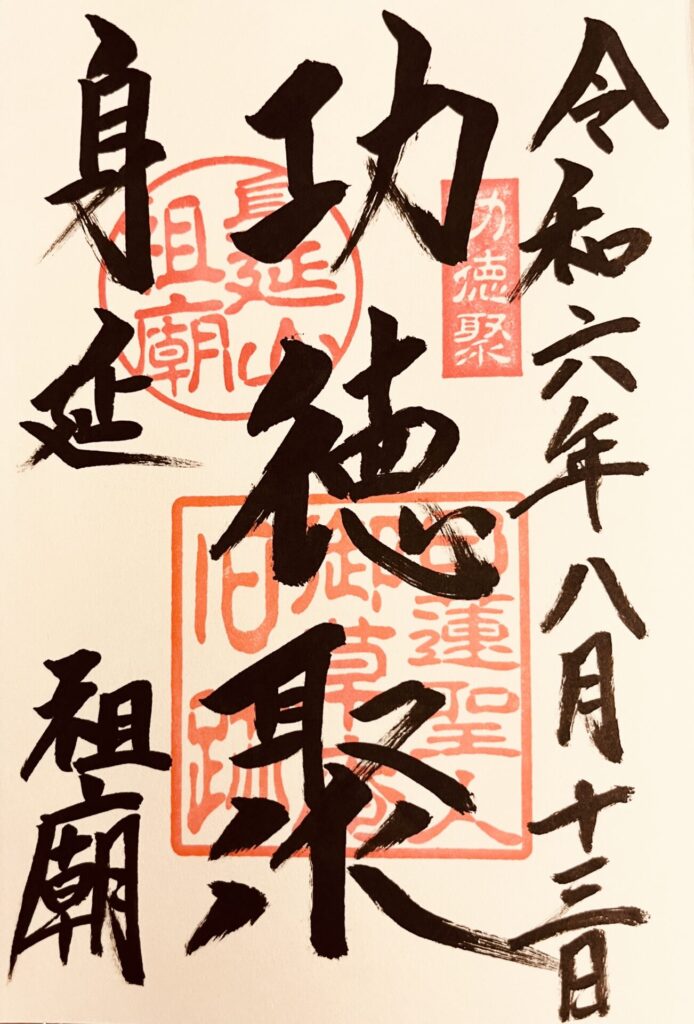 令和六年八月十三日
功徳聚
功徳聚
日蓮聖人
御草庵
旧跡
身延山
祖廟
身延 祖廟